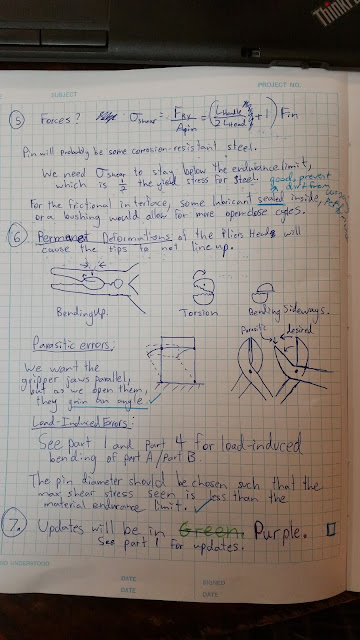 ThinkPad
SUBJECT
PROJECT NO.
⑤ Forces? σshear = FBx / Apin = (Lhandle / 2 Lhead + 1) Fin
Pin will probably be some corrosion-resistant steel.
We need σshear to stay below the endurance limit,
which is 1/2 the yield stress for steel.
good, prevent
dirt from
For the frictional interface, some lubricant sealed inside,
or a bushing would allow for more open-close cycles.
⑥ Permanent Deformations of the Pliers Heads will
cause the tips to not line up.
Bending Up.
Torsion
Bending Sideways.
Parasitic errors:
Parasitic
desired
We want the
gripper jaws parallel,
but as we open them,
they gain an angle
Load-Induced Errors:
See part 1 and part 4 for load-induced
bending of part A/part B
The pin diameter should be chosen such that the
max shear stress seen is less than the
material endurance limit.
⑦. Updates will be in Green. Purple.
See part 1 for updates.
AND UNDERSTOOD
DATE
SIGNED
DATE
DATE